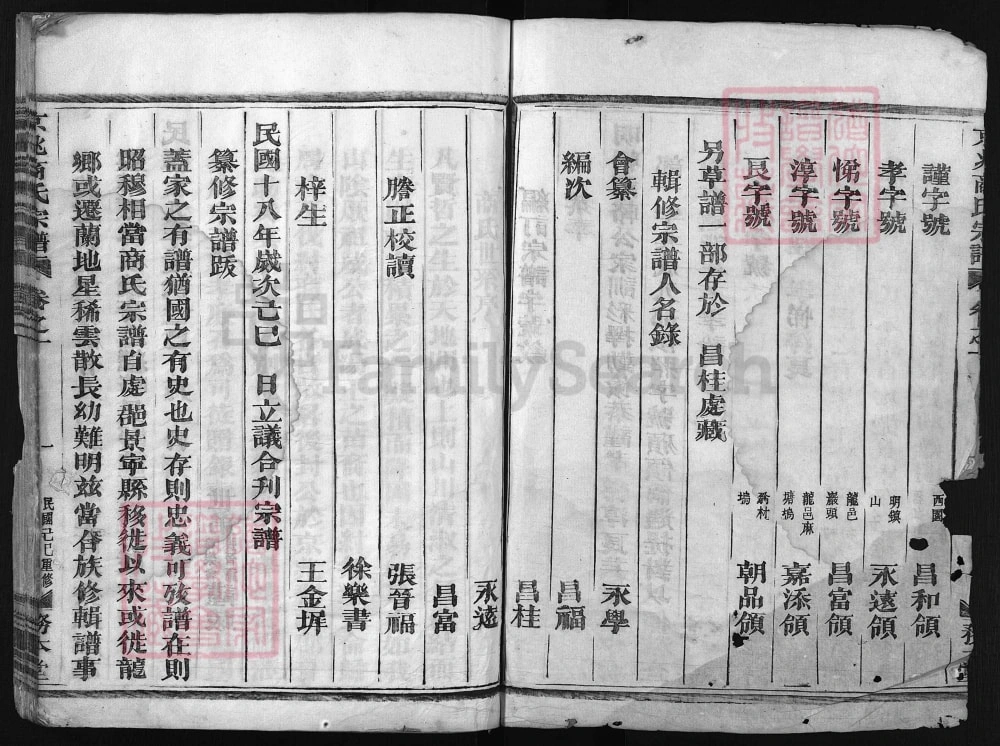 謹字號 西園 昌和領
孝字號 明鎮山 永遠領
悌字號 龍邑巖頭 昌富領
淳字號 龍邑麻塘塢 嘉添領
良字號 塢 朝品領
另草譜一部存於 昌桂處藏
輯修宗譜人名錄
會纂 永學
編次 昌福
昌桂
永遠
昌富
謄正校讀 張晉福
徐樂書
梓生 王金墀
民國十八年歲次己巳 日立議合刊宗譜
纂修宗譜跋
蓋家之有譜猶國之有史也史存則忠義可政譜在則
昭穆相當商氏宗譜自處郡景寧縣移徙以來或徙龍
鄉或還蘭地星稀雲散長幼難明茲當合族修輯譜事
京兆商氏宗譜 卷之一
一 民國己巳重修 務本堂
FamilySearch